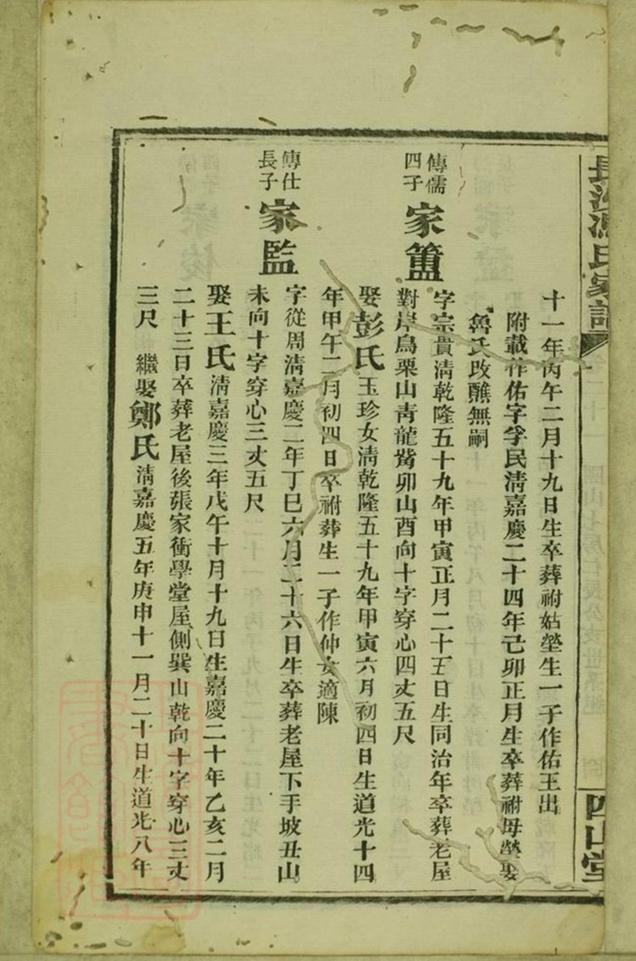 長沙馮氏家譜
四山堂
十一年丙午二月十九日生卒葬祔姑塋生一子作佑王出
附載作佑字孚民清嘉慶二十四年己卯正月生卒葬祔母塋娶
魯氏改醮無嗣
傳儒四子 家簠 字宗貴清乾隆五十九年甲寅正月二十五日生同治年卒葬老屋
對岸鳥栗山青龍嘴卯山酉向十字穿心四丈五尺
娶彭氏玉珍女清乾隆五十九年甲寅六月初四日生道光十四
年甲午二月初四日卒祔葬生一子作仲女適陳
傳仕長子 家監 字從周清嘉慶二年丁巳六月二十六日生卒葬老屋下手坡丑山
未向十字穿心三丈五尺
娶王氏清嘉慶三年戊午十月十九日生嘉慶二十年乙亥二月
二十三日卒葬老屋後張家衝學堂屋側巽山乾向十字穿心三丈
三尺 繼娶鄭氏清嘉慶五年庚申十一月二十日生道光八年